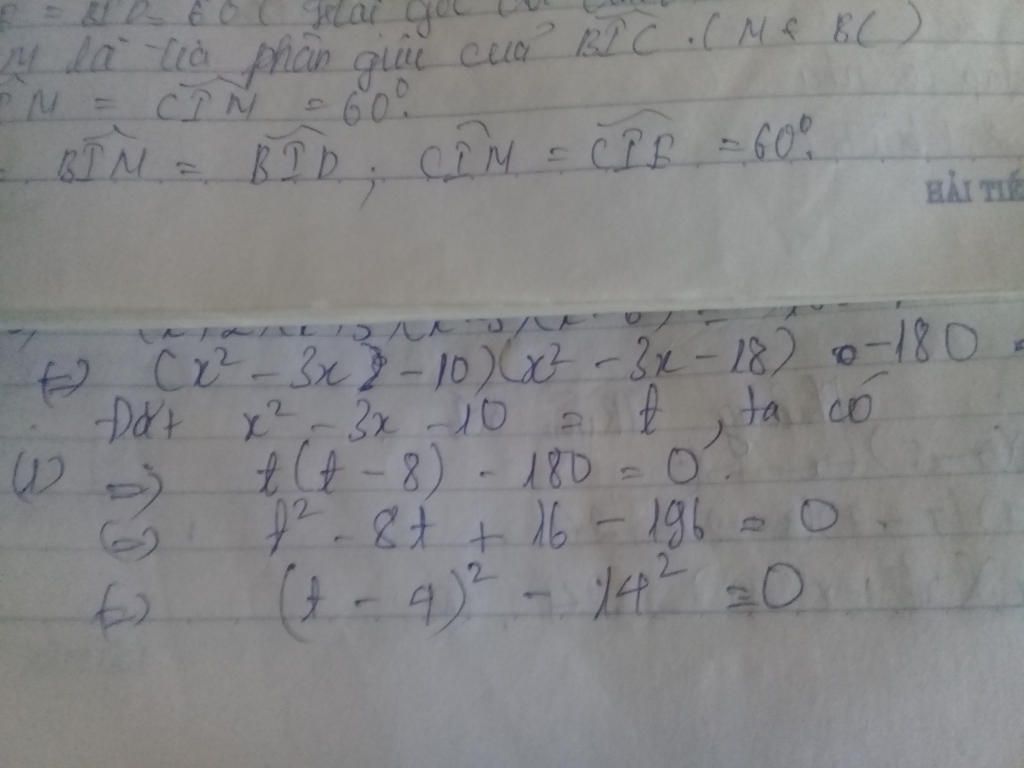 M là tia phân giác của BIC. (M ∈ BC)
IM = CIM = 60°.
= BIM = BID ; CIM = CIE = 60°.
HẢI TIẾ
(=) (x² - 3x - 10)(x² - 3x - 18) - 180 =
Đặt x² - 3x - 10 = t, ta có
(1) => t(t - 8) - 180 = 0.
(=) t² - 8t + 16 - 196 = 0
(=) (t - 4)² - 14² = 0